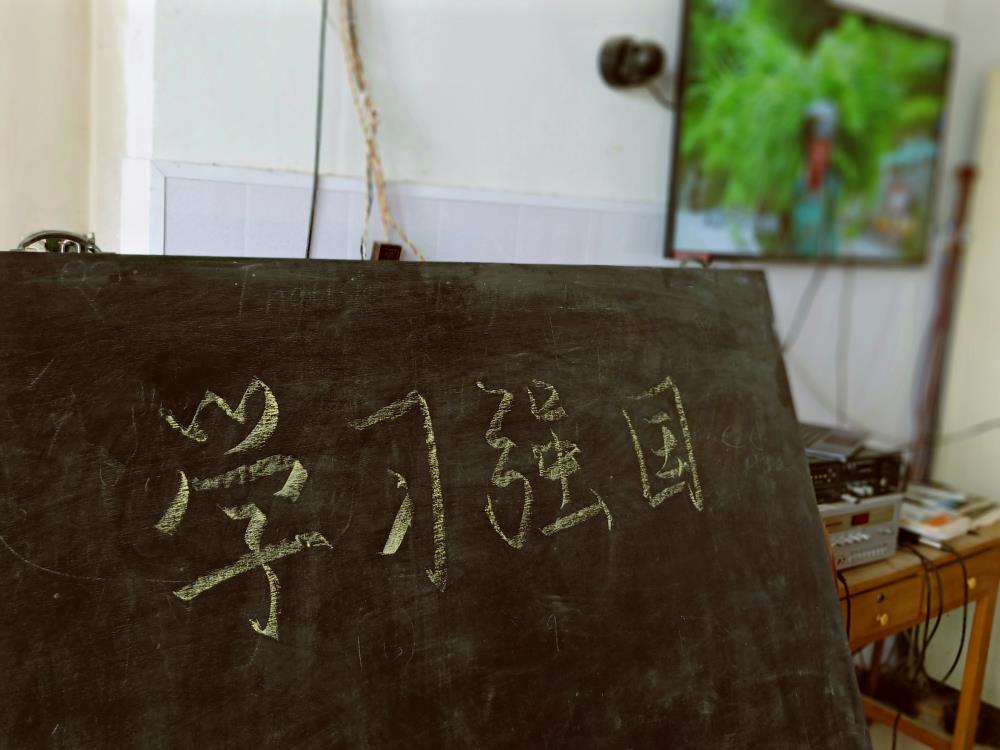 学习强国